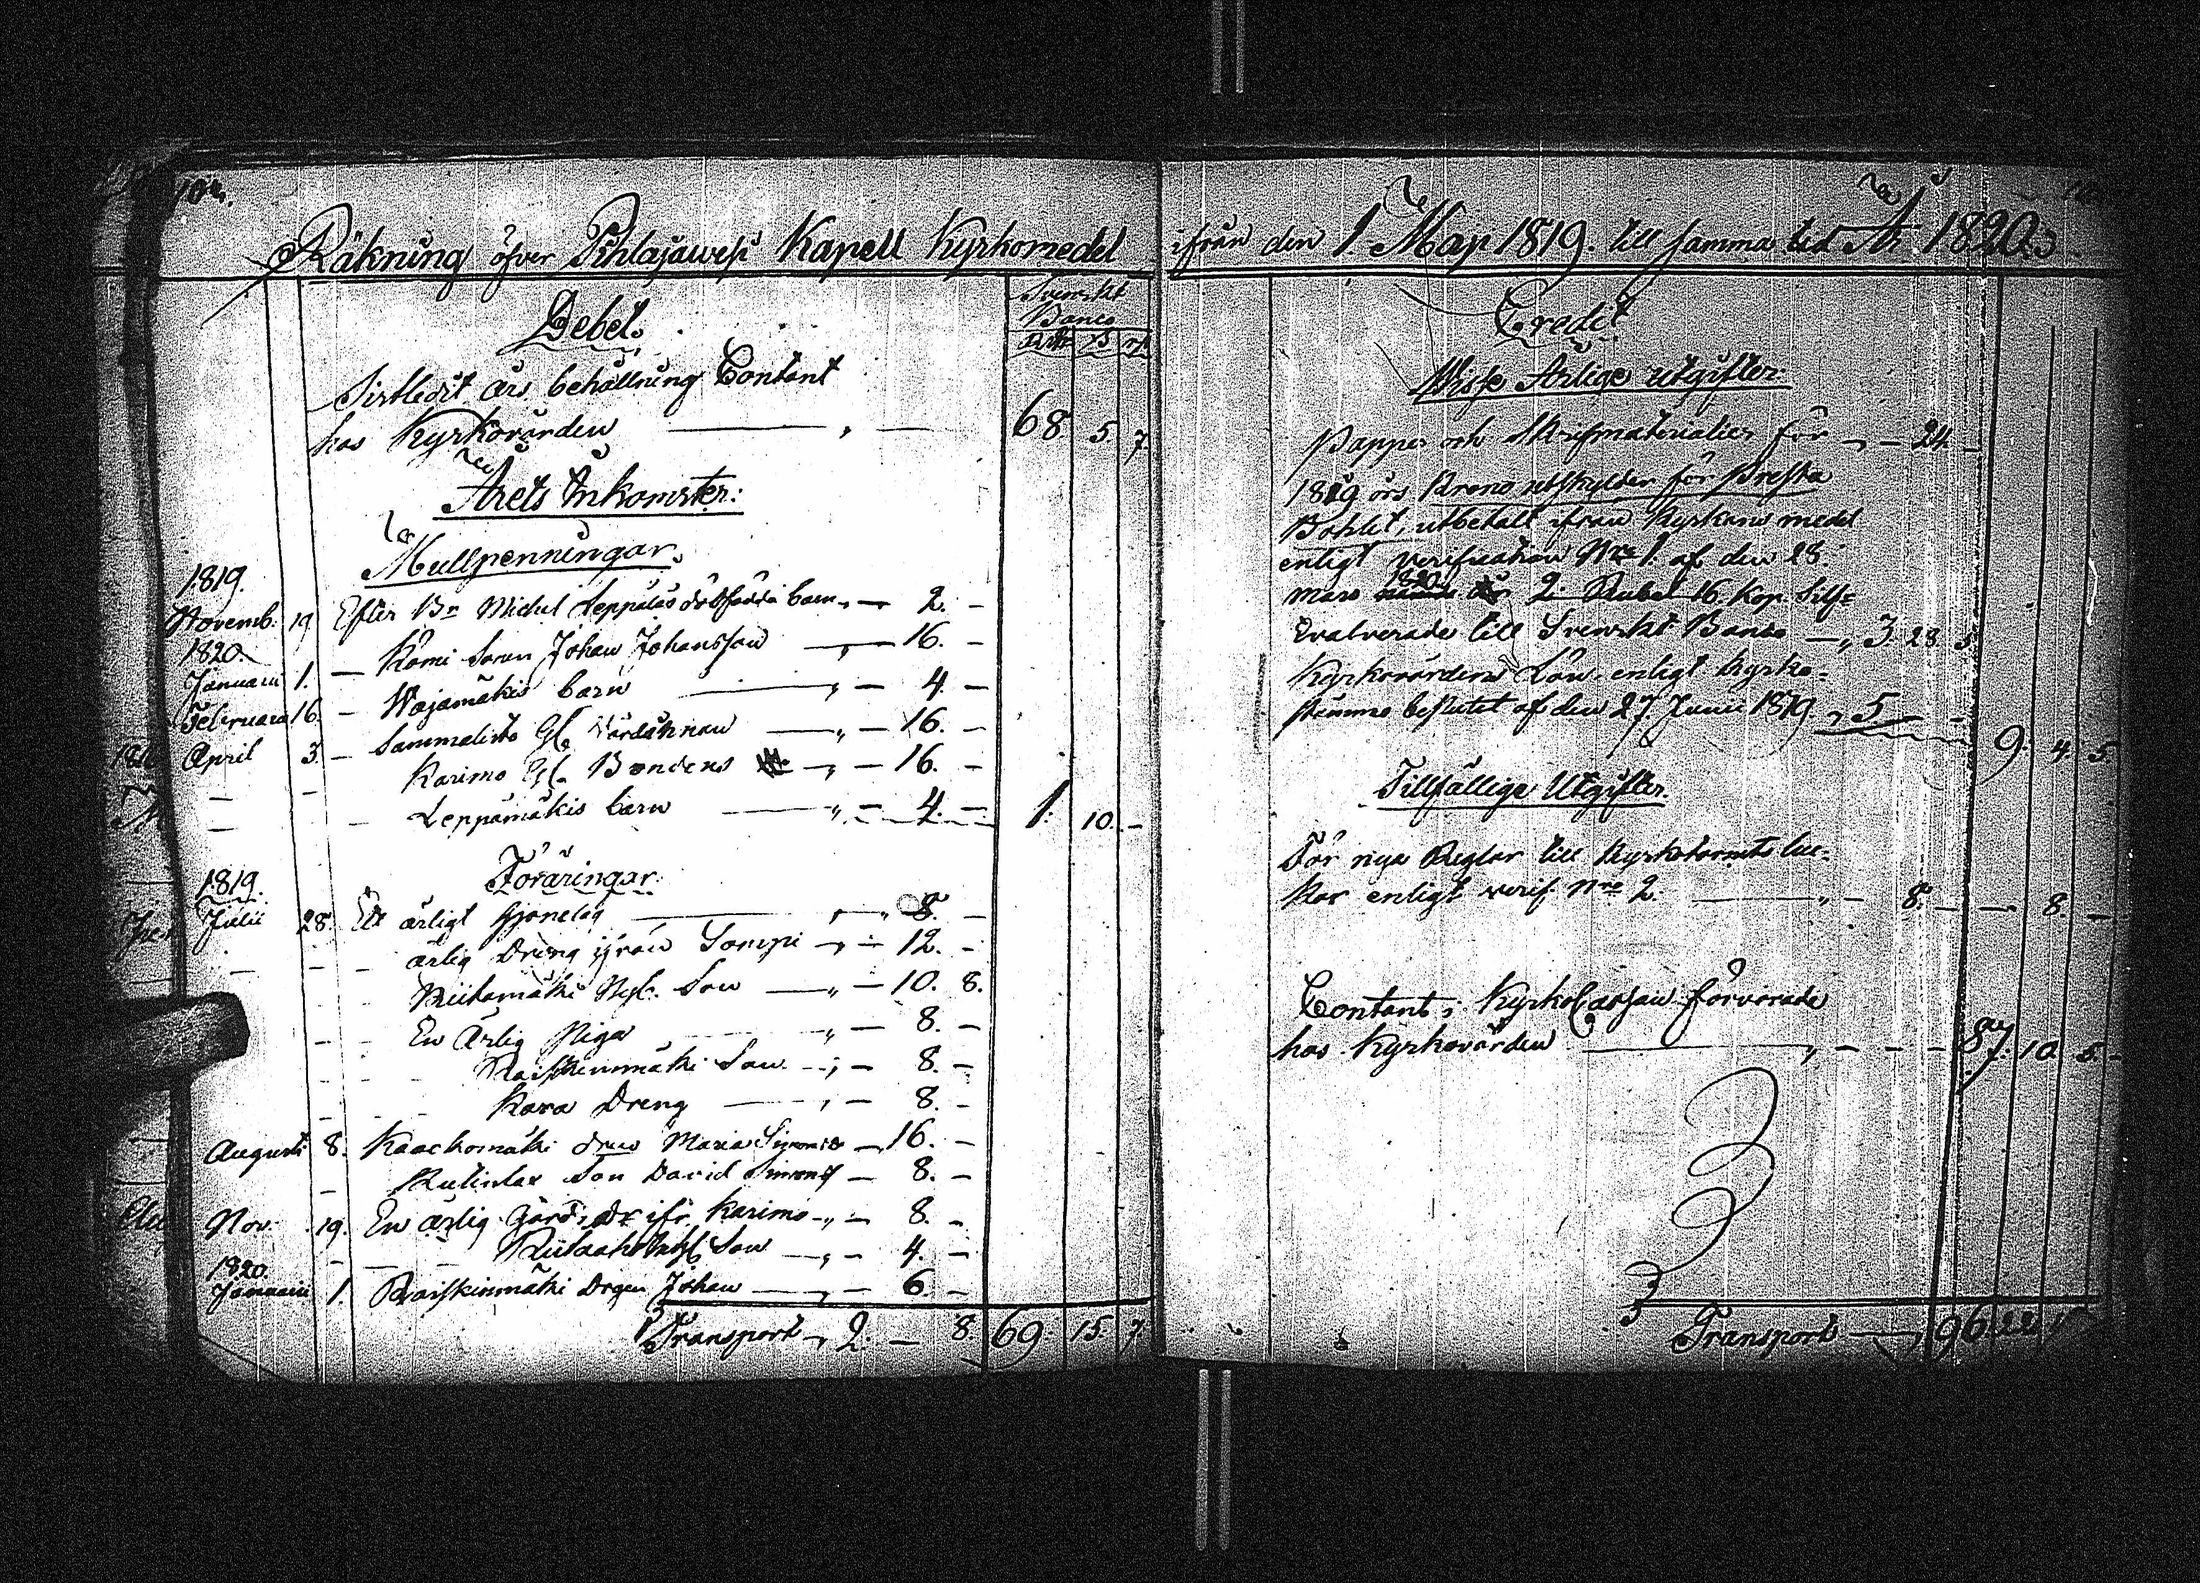 104.
Räkning öfver Pihlajawesi Kapell Kyrkomedel
Debet.
Svenskt
Banco
Rdr ß rs
Sistledit års behållning Contant
hos Kyrkovärden — „ — 68 5 7
Årets Inkomster:
Mullpenningar.
1819.
Novemb. 19 Efter Bn Michel Leppälas dödfödda barn „ — 2. —
1820.
Januarii 1. — Kömi Sonen Johan Johansson „ — 16. —
Februarii 16. — Wäjamäkis barn „ — 4. —
April 3. — Sammalisto „ — 16. —
— — Karimo Bondens „ — 16. —
— — Leppämäkis barn „ — 4. — 1. 10. —
Föräringar.
1819.
Julii 28. Ett ärligt hjonelag „ — 8. —
— — — ärlig Dreng ifrån Sompi „ — 12. —
— — Riihimäki Son „ — 10. 8.
— — En Ärlig Piga „ — 8. —
— — — Raiskinmäki Son „ — 8. —
— — — Kara Dreng „ — 8. —
Augusti 8. Kaachomäki Maria — 16. —
— Son David — 8. —
Nov. 19. En ärlig ifr. Karimo „ — 8. —
— — — Son „ — 4. —
1820.
Januarii 1. Raiskinmäki Drgen Johan „ — 6. —
Transport „ 2. — 8. 69. 15. 7.
ifrån den 1. Maji 1819. till samma tid År 1820.
Credit
Wisse Årlige Utgifter.
Papper och Skrifmaterialier för „ — 24 —
1819 års Krono utskylder för Presta
Bohlet, utbetalt ifrån Kyrkans medel
enligt verification Nro 1. af den 28.
Mars 1820 2 Rubel 16 Kop. Silf=
Evalverade till Svenskt Banco — „ 3. 28. 5
Kyrkovärdens Lön enligt Kyrko=
stämmo beslutet af den 27. Junii 1819 „ 5 — —
9. 4. 5.
Tillfällige Utgifter.
För nya Reglar till Kyrkotornets luc=
kor enligt verif. Nro 2. „ — 8. — — 8. —
Contant i Kyrko Cassan förvarade
hos Kyrkovärden „ — — — 87. 10. 5.
Transport — „ 96